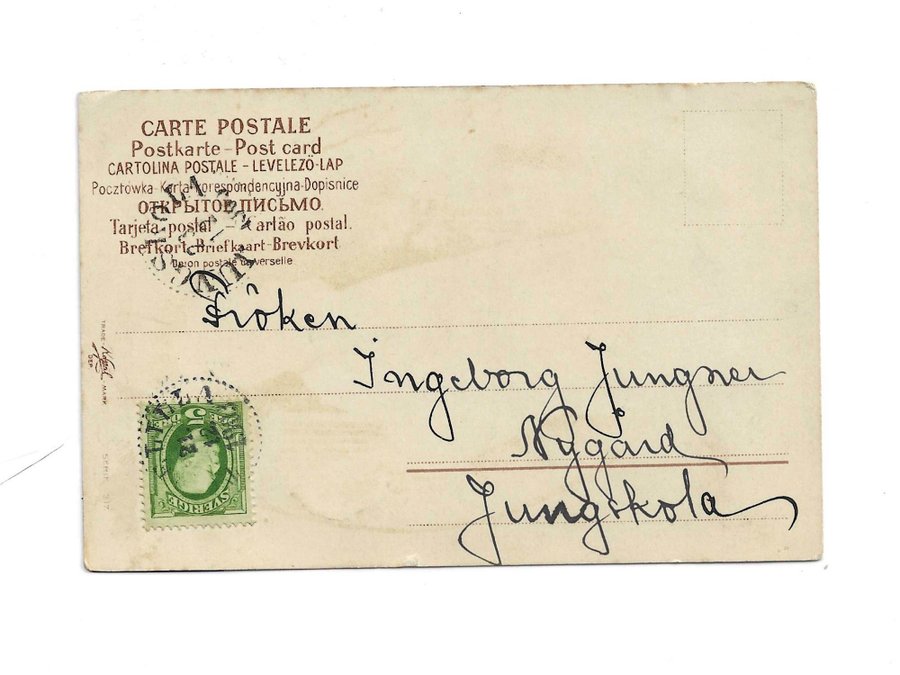 CARTE POSTALE
Postkarte - Post card
CARTOLINA POSTALE - LEVELEZŐ-LAP
Pocztówka-Karta korespondencyjna-Dopisnice
ОТКРЫТОЕ ПИСЬМО.
Tarjeta postal Cartão postal.
Brefkort-Briefkaart-Brevkort
Union postale universelle
Fröken
Ingeborg Jungner
Nygård
Jungskola
TRADE MARK
SERIE
5
SVERIGE